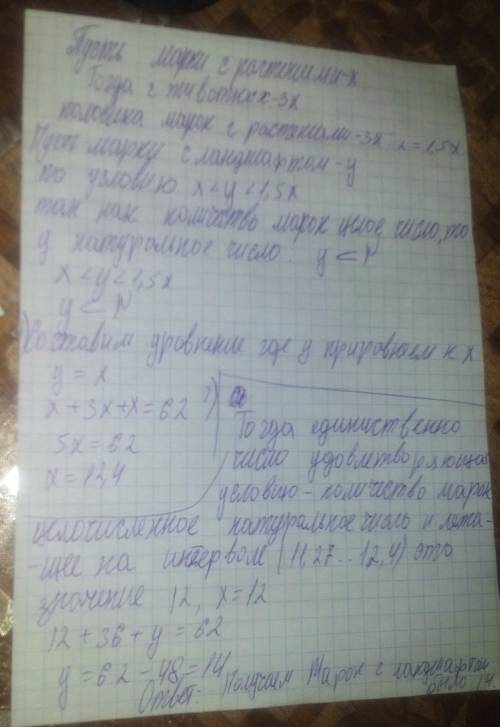 Пусть марки с растениями-x
Тогда с животных-3x
половина марок с растениями-3x 2=1,5x
Пусть марки с ландшафтом-y
по условию x<y<1,5x
так как количество марок целое число, то
y натуральное число. y ⊂ N
x<y<1,5x
y ⊂ N
Составим уровнение где y прировняем к x
y = x
x+3x+x=62
5x=62
x=12,4
2)
Тогда единиственно
число удовлетворяющая
условию-количество марок
целочисленное натуральное число и лежа-
-щее на интервом (11,27...12,4) это
значение 12, x=12
12+36+y=62
y=62-48=14
Ответ: Получаем марок с ландшафтом
было 14